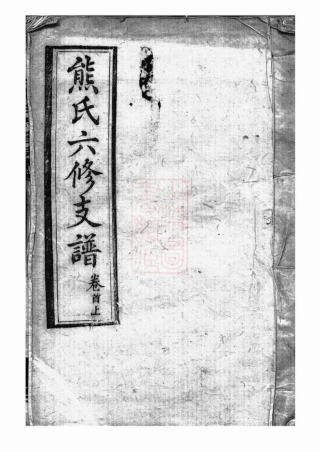 熊氏六修支譜
卷首上